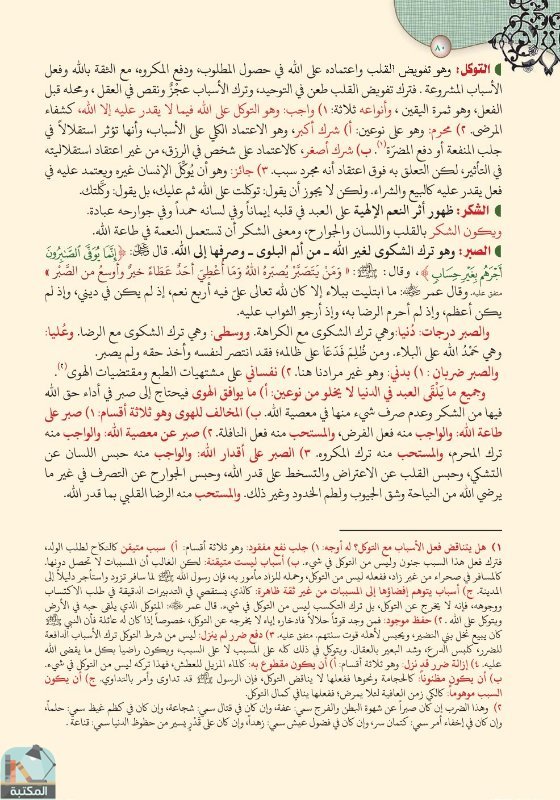 ٨٠
التوكل: وهو تفويض القلب واعتماده على الله في حصول المطلوب، ودفع المكروه، مع الثقة بالله وفعل
الأسباب المشروعة. فترك تفويض القلب طعن في التوحيد، وترك الأسباب عجْزٌ ونقص في العقل، ومحله قبل
الفعل، وهو ثمرة اليقين، وأنواعه ثلاثة: ١) واجب: وهو التوكل على الله فيما لا يقدر عليه إلا الله، كشفاء
المرضى. ٢) محرم: وهو على نوعين: أ) شرك أكبر، وهو الاعتماد الكلي على الأسباب، وأنها تؤثر استقلالاً في
جلب المنفعة أو دفع المضرّة(١). ب) شرك أصغر، كالاعتماد على شخص في الرزق، من غير اعتقاد استقلاليته
في التأثير، لكن التعلق به فوق اعتقاد أنه مجرد سبب. ٣) جائز: وهو أن يُوكِّل الإنسان غيره ويعتمد عليه في
فعل يقدر عليه كالبيع والشراء. ولكن لا يجوز أن يقول: توكلت على الله ثم عليك، بل يقول: وكَّلتك.
الشكر: ظهور أثر النعم الإلهية على العبد في قلبه إيماناً وفي لسانه حمداً وفي جوارحه عبادة.
ويكون الشكر بالقلب واللسان والجوارح، ومعنى الشكر أن تستعمل النعمة في طاعة الله.
الصبر: وهو ترك الشكوى لغير الله ـ من ألم البلوى ـ وصرفها إلى الله. قال ﷻ: ﴿إِنَّمَا يُوَفَّى الصَّابِرُونَ
أَجْرَهُم بِغَيْرِ حِسَابٍ﴾، وقال ﷺ: « وَمَنْ يَتَصَبَّرْ يُصَبِّرهُ اللهُ وَمَا أُعْطِيَ أَحَدٌ عَطَاءً خيرٌ وأوسعُ من الصَّبْر »
متفق عليه. وقال عمر ﷺ: ما ابتليت ببلاء إلا كان لله تعالى عليّ فيه أربع نعم، إذ لم يكن في ديني، وإذ لم
يكن أعظم، وإذ لم أحرم الرضا به، وإذ أرجو الثواب عليه.
والصبر درجات: دُنيا: وهي ترك الشكوى مع الكراهة. ووسطى: وهي ترك الشكوى مع الرضا. وعُليا:
وهي حَمْدُ الله على البلاء. ومن ظُلِمَ فَدَعَا على ظالمه؛ فقد انتصر لنفسه وأخذ حقه ولم يصبر.
والصبر ضربان: ١) بدني: وهو غير مرادنا هنا. ٢) نفساني على مشتهيات الطبع ومقتضيات الهوى(٢).
وجميع ما يَلْقَى العبد في الدنيا لا يخلو من نوعين: أ) ما يوافق الهوى فيحتاج إلى صبر في أداء حق الله
فيها من الشكر وعدم صرف شيء منها في معصية الله. ب) المخالف للهوى وهو ثلاثة أقسام: ١) صبر على
طاعة الله: والواجب منه فعل الفرض، والمستحب منه فعل النافلة. ٢) صبر عن معصية الله: والواجب منه
ترك المحرم، والمستحب منه ترك المكروه. ٣) الصبر على أقدار الله: والواجب منه حبس اللسان عن
التشكي، وحبس القلب عن الاعتراض والتسخط على قدر الله، وحبس الجوارح عن التصرف في غير ما
يرضي الله من النياحة وشق الجيوب ولطم الخدود وغير ذلك. والمستحب منه الرضا القلبي بما قدر الله.
١) هل يتناقض فعل الأسباب مع التوكل؟ له أوجه: ١) جلب نفع مفقود: وهو ثلاثة أقسام: أ) سبب متيقن كالنكاح لطلب الولد،
فترك فعل هذا السبب جنون وليس من التوكل في شيء. ب) أسباب ليست متيقنة: لكن الغالب أن المسببات لا تحصل دونها.
كالمسافر في صحراء من غير زاد، ففعله ليس من التوكل، وحمله للزاد مأمور به، فإن رسول الله ﷺ لما سافر تزود واستأجر دليلاً إلى
المدينة. ج) أسباب يتوهم إفضاؤها إلى المسببات من غير ثقة ظاهرة: كالذي يستقصي في التدبيرات الدقيقة في طلب الاكتساب
ووجوهه، فإنه لا يخرج عن التوكل، بل ترك التكسب ليس من التوكل في شيء. قال عمر: المتوكل الذي يلقي حبه في الأرض
ويتوكل على الله. ٢) حفظ موجود: فمن وجد قوتاً حلالاً فادخاره إياه لا يخرجه عن التوكل، خصوصاً إذا كان له عائلة فإن النبي ﷺ
كان يبيع نخل بني النضير، ويحبس لأهله قوت سنتهم. متفق عليه. ٣) دفع ضرر لم ينزل: ليس من شرط التوكل ترك الأسباب الدافعة
للضرر، كلبس الدرع، وشد البعير بالعقال. ويتوكل في ذلك كله على المسبب لا على السبب، ويكون راضياً بكل ما يقضي الله
عليه. ٤) إزالة ضرر قد نزل: وهو ثلاثة أقسام: أ) أن يكون مقطوع به: كالماء المزيل للعطش، فهذا تركه ليس من التوكل في شيء.
ب) أن يكون مظنوناً: كالحجامة ونحوها ففعلها لا يناقض التوكل، فإن الرسول ﷺ قد تداوى وأمر بالتداوي. ج) أن يكون
السبب موهوماً: كالكي زمن العافية لئلا يمرض؛ ففعلها ينافي كمال التوكل.
٢) وهذا الضرب إن كان صبراً عن شهوة البطن والفرج سمي: عفة، وإن كان في قتال سمي: شجاعة، وإن كان في كظم غيظ سمي: حلماً،
وإن كان في إخفاء أمر سمي: كتمان سر، وإن كان في فضول عيش سمي: زهداً، وإن كان على قدْرٍ يسير من حظوظ الدنيا سمي: قناعة.
المكتبة